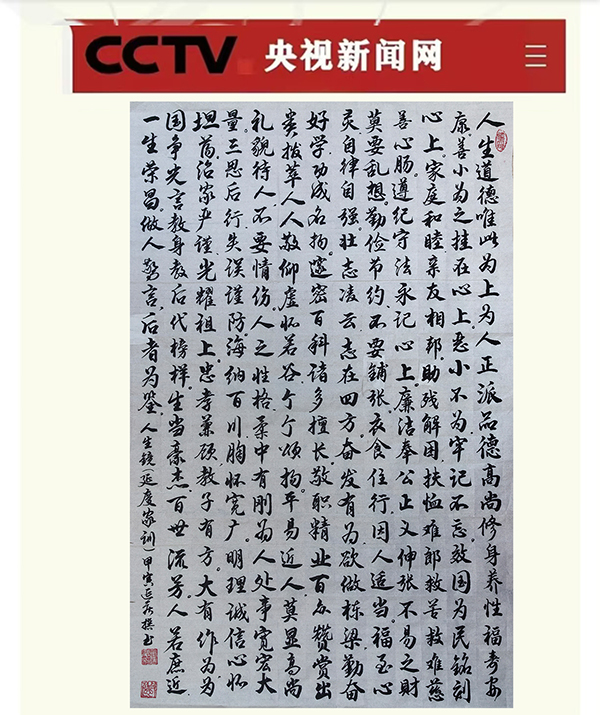 CCTV 央视新闻网
人生道德唯此为上为人正派品德高尚修身养性福寿安
康。善小为之挂在心上恶小不为牢记不忘效国为民铭刻
心上。家庭和睦亲友相邦助残解困扶恤难郎救苦救难慈
善心肠遵纪守法永记心上。廉洁奉公正义伸张不易之财
莫要乱想。勤俭节约不要铺张衣食住行因人适当。福至心
灵自律自强壮志凌云志在四方。奋发有为欲做栋梁勤奋
好学功成名扬。邃密百科诸多擅长敬职精业百众赞赏出
类拔萃人人敬仰虚怀若谷个个颂扬。平易近人莫显高尚
礼貌待人不要情伤人之性格柔中有刚为人处事宽宏大
量三思后行失误谨防海纳百川胸怀宽广。明理诚信心怀
坦荡治家严谨光耀祖上忠孝兼顾教子有方。大有作为为
国争光言教身教后代榜样。生当豪杰百世流芳人若庶近
一生荣昌。做人警言，后者为鉴。人生镜(延庆家训)甲寅延撰书